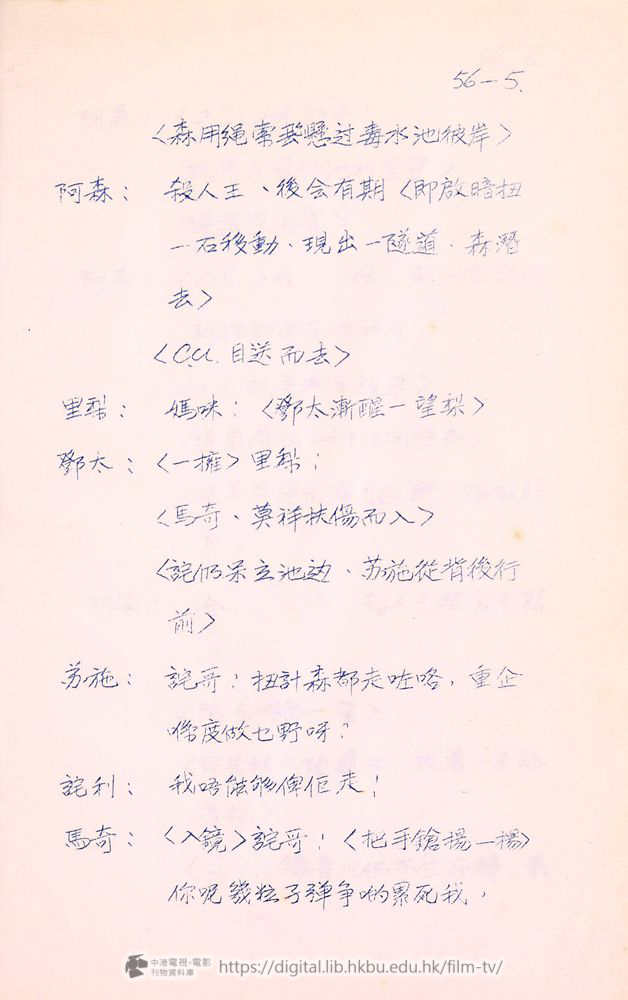 56-5.
<森用繩索飛懸过毒水池彼岸>
阿森： 殺人王、後会有期<即啟暗扭
一石移動、現出一隧道．森潛
去>
<C.U. 目送而去>
里梨： 媽咪！<鄧太漸醒一望梨>
鄧太：<一擁>里梨！
<馬奇、莫祥扶傷而入>
<詫仍呆立池边、苏施從背後行
前>
苏施： 詫哥！扭計森都走咗咯，重企
喺度做乜野呀？
詫利： 我唔能够俾佢走！
馬奇：<入鏡>詫哥！<把手鎗揚一揚>
你呢幾粒子弹争啲累死我，
中港電視·電影
刊物資料庫
https://digital.lib.hkbu.edu.hk/film-tv/